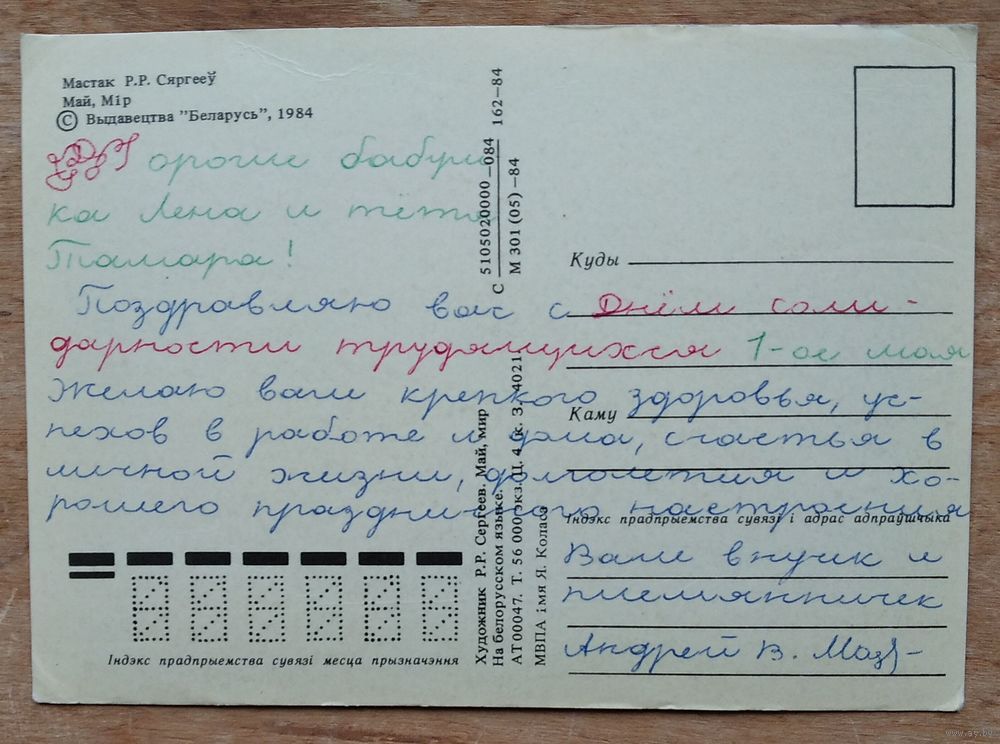 Мастак Р.Р. Сяргееў
Май, Мір
© Выдавецтва "Беларусь", 1984
Дорогие бабуш
ка Лена и тётя
Тамара!
Поздравляю вас с Днём соли-
дарности трудящихся 1-ое мая
Желаю вам крепкого здоровья, ус-
пехов в работе и дома, счастья в
личной жизни, долголетия и хо-
рошего праздничного настроения
Ваш внучик и
племянничек
Андрей В.
Куды
Каму
Індэкс прадпрыемства сувязі і адрас адпраўшчыка
Індэкс прадпрыемства сувязі месца прызначэння
С 5105020000—084 162—84
М 301 (05)—84
Художник Р.Р. Сергеев. Май, мир
На белорусском языке.
АТ00047. Т. 56 000 экз. Ц. 4 к. З. 4021
МВПА імя Я. Коласа
www.ay.by